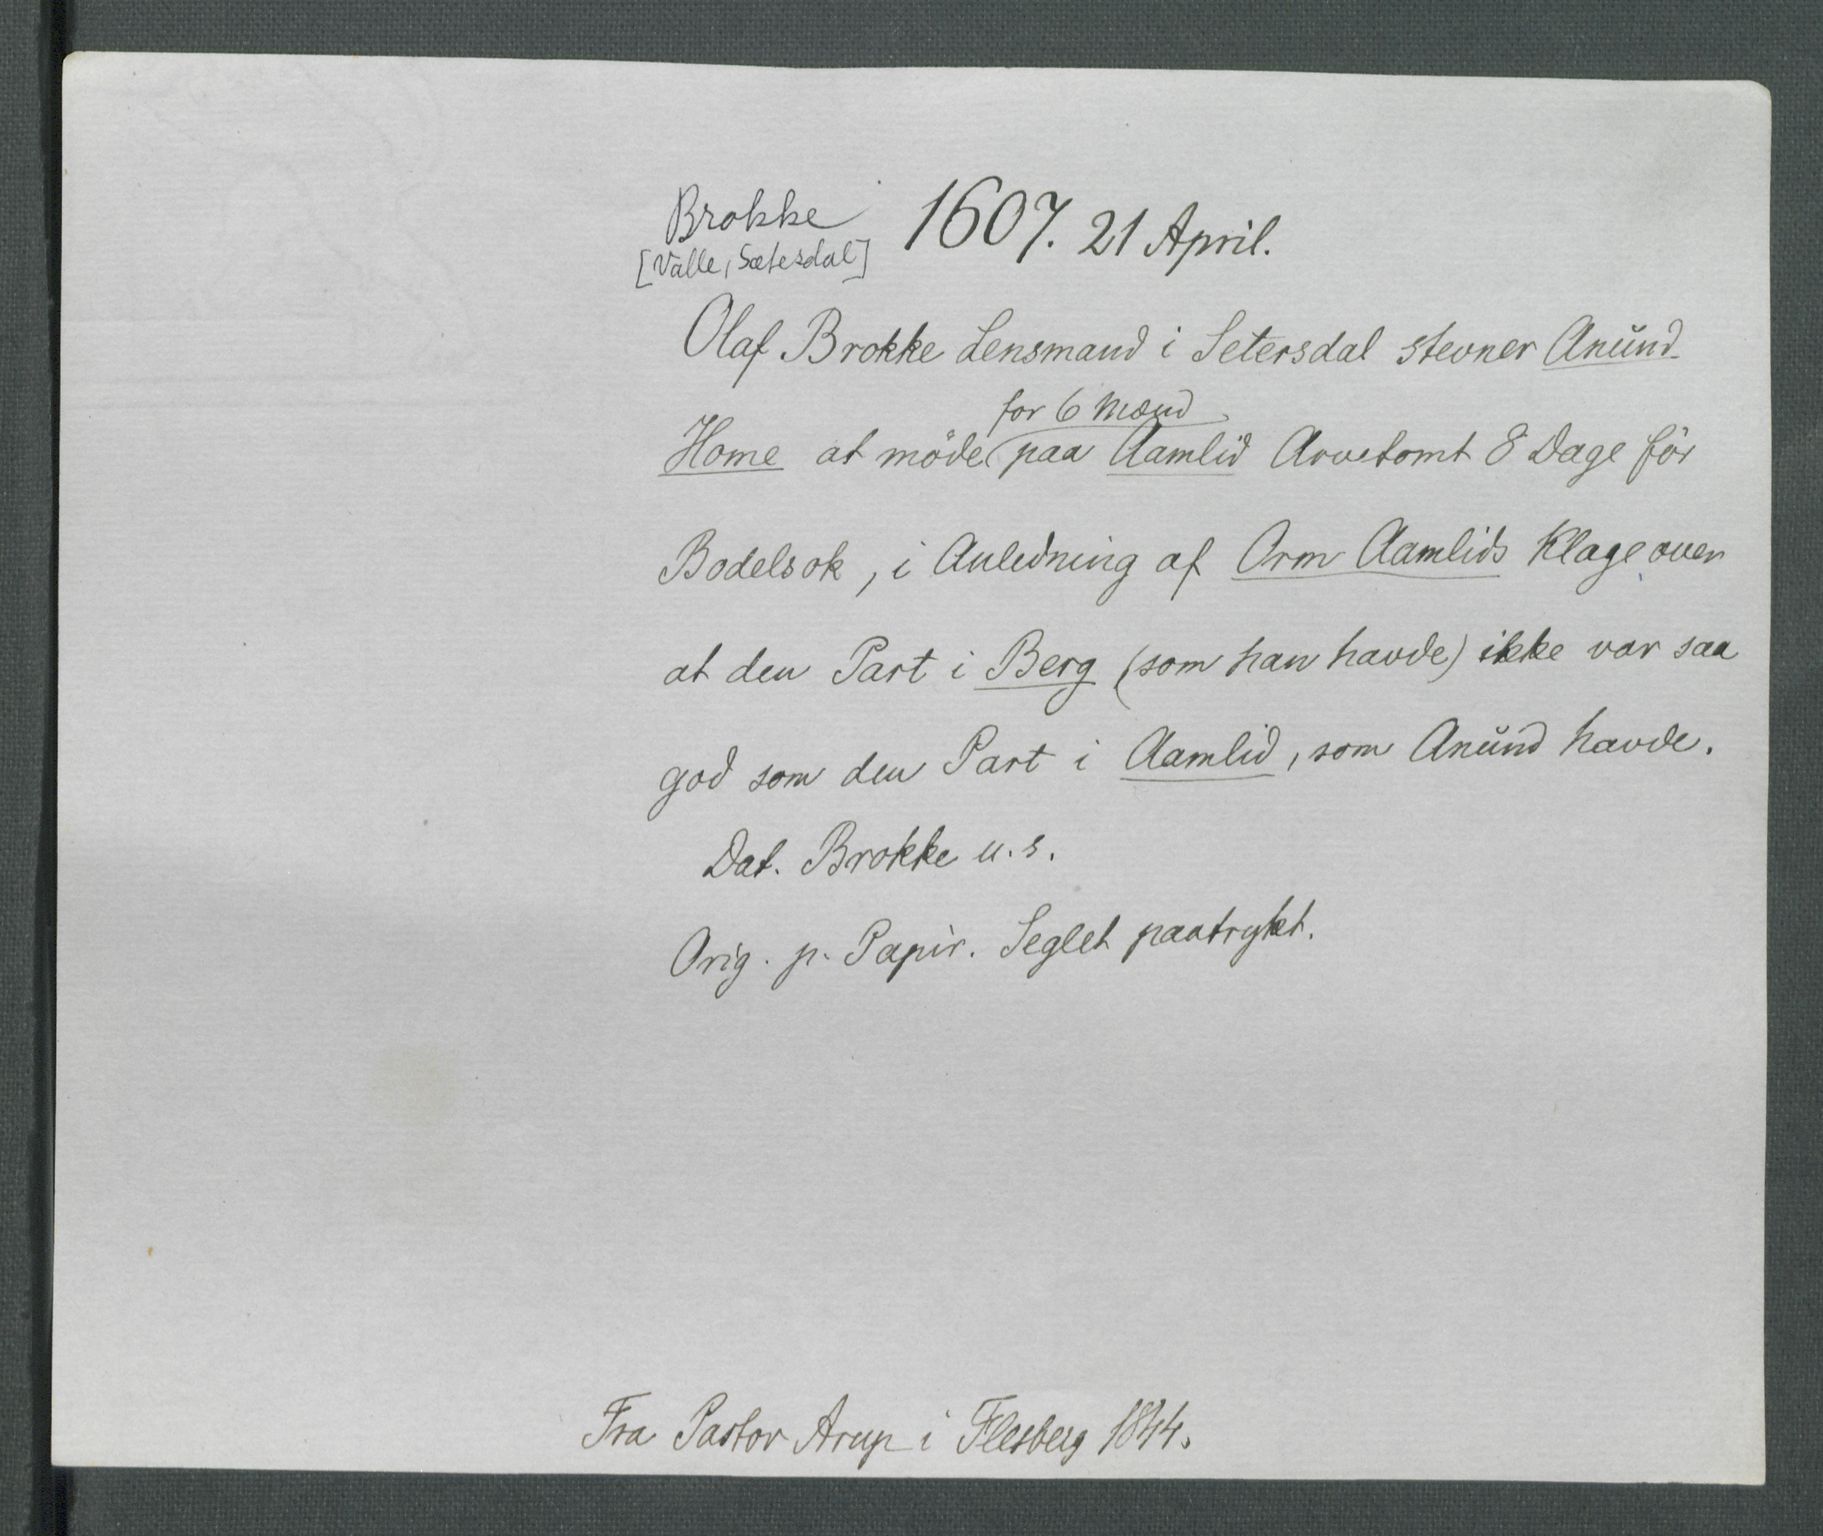 Brokke 1607. 21 April.
[Valle, Sætesdal]
Olaf Brokke Lensmand i Setersdal stevner Anund
for 6 Mænd
Home at möde paa Aamlid Arvetomt 8 Dage för
Bodelsok, i Anledning af Orm Aamlids Klage over
at den Part i Berg (som han havde) ikke var saa
god som den Part i Aamlid, som Anund havde.
Dat. Brokke u. s.
Orig. p. Papir. Seglet paatrykt.
Fra Pastor Arup i Flesberg 1844.